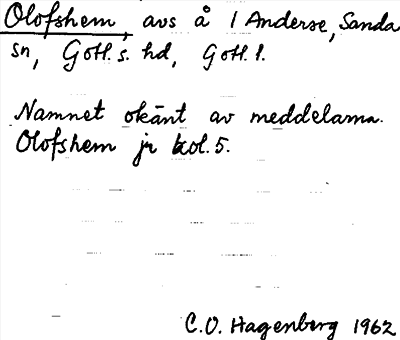 Olofshem, avs å 1 Anderse, Sanda
sn, Gotl. s. hd, Gotl. l.
Namnet okänt av meddelarna.
Olofshem jr kol. 5.
C.O. Hagenberg 1962